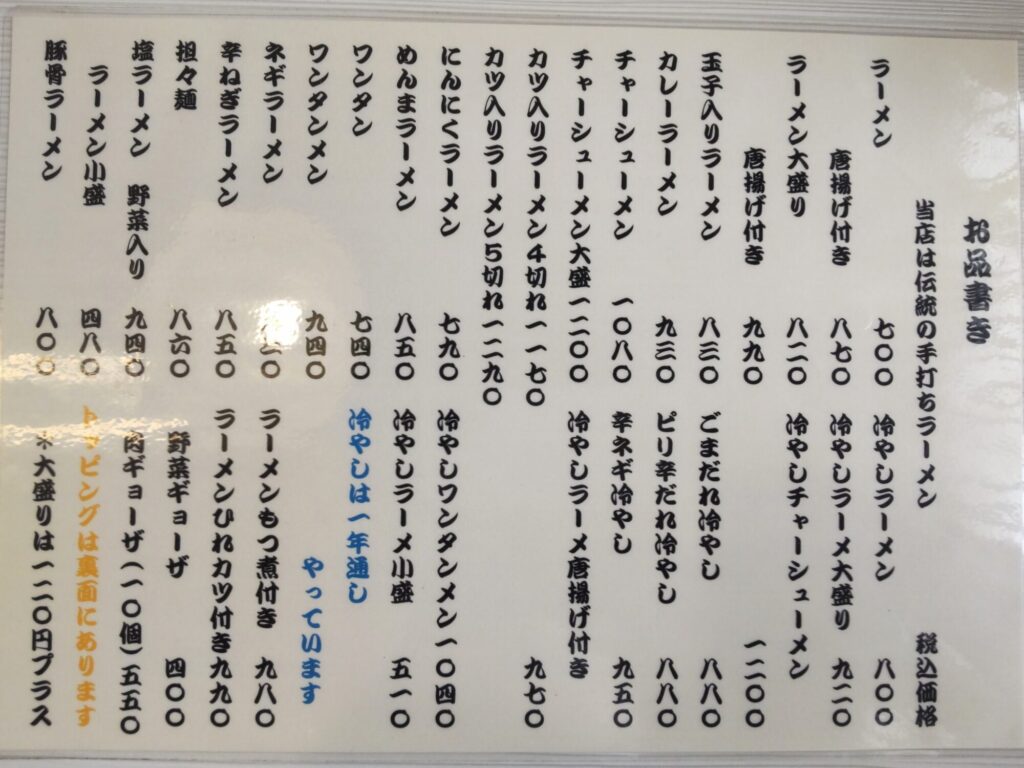 お品書き
当店は伝統の手打ちラーメン 税込価格
ラーメン 七〇〇 冷やしラーメン 八〇〇
唐揚げ付き 八七〇 冷やしラーメ大盛り 九二〇
ラーメン大盛り 八二〇 冷やしチャーシューメン
唐揚げ付き 九九〇 一二〇〇
玉子入りラーメン 八三〇 ごまだれ冷やし 八八〇
カレーラーメン 九三〇 ピリ辛だれ冷やし 八八〇
チャーシューメン 一〇八〇 辛ネギ冷やし 九五〇
チャーシューメン大盛一二〇〇 冷やしラーメ唐揚げ付き
カツ入りラーメン4切れ一一七〇 九七〇
カツ入りラーメン5切れ一二九〇
にんにくラーメン 七九〇 冷やしワンタンメン一〇四〇
めんまラーメン 八五〇 冷やしラーメ小盛 五一〇
ワンタン 七四〇 冷やしは一年通し
ワンタンメン 九四〇 やっています
ネギラーメン ラーメンもつ煮付き 九八〇
辛ねぎラーメン 八五〇 ラーメンひれカツ付き九九〇
担々麺 八六〇 野菜ギョーザ 四〇〇
塩ラーメン 野菜入り 九四〇 肉ギョーザ(一〇個)五五〇
ラーメン小盛 四八〇 トッピングは裏面にあります
豚骨ラーメン 八〇〇 ＊大盛りは一二〇円プラス